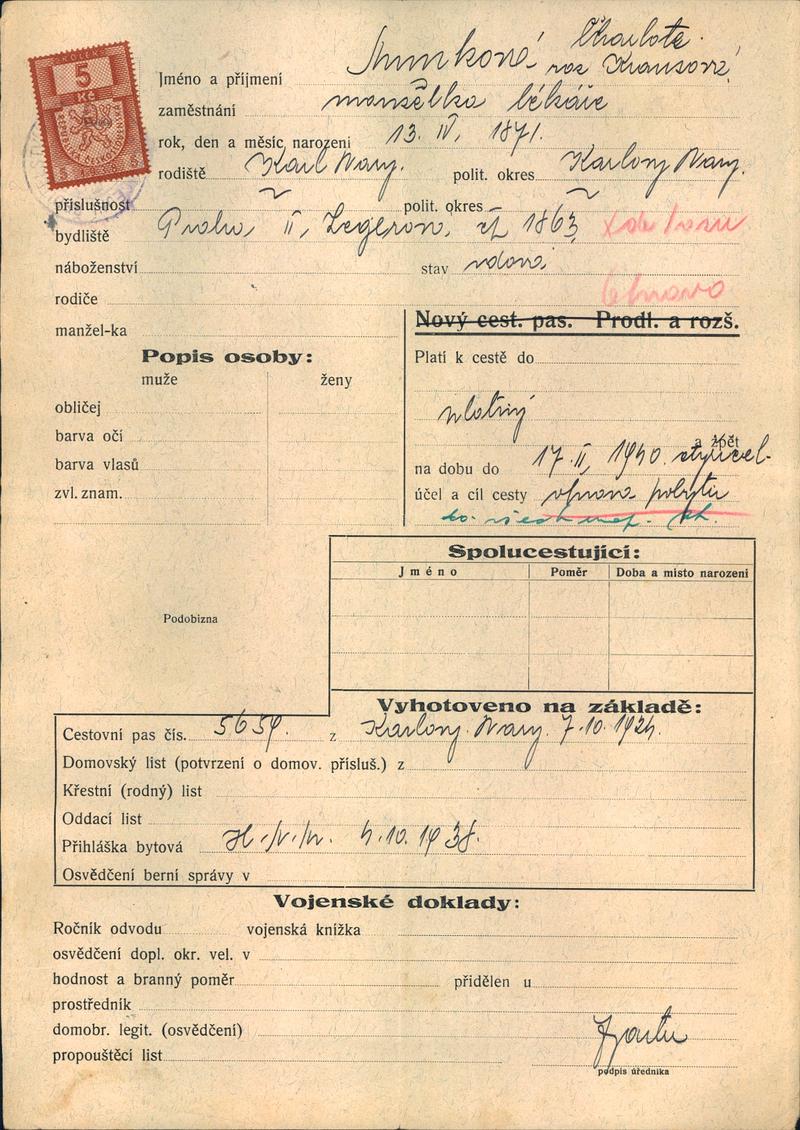 KOLEK
5
Kč
REPUBLIKA ČESKOSLOVENSKÁ
Charlote
Jméno a příjmení roz Krausová
zaměstnání manželka lékáře
rok, den a měsíc narození 13. IV. 1871.
rodiště Karl Vary. polit. okres Karlovy Vary.
příslušnost ~ polit. okres ~
bydliště Praha, II, Legerova, čp 1863
náboženství stav vdova
rodiče
manžel-ka
Nový cest. pas. Prodl. a rozš.
Popis osoby:
Platí k cestě do
muže ženy
obličej
platný
barva očí
a zpět
barva vlasů
na dobu do 17. II. 1940.
zvl. znam.
účel a cíl cesty pobytu
Spolucestující:
Jméno Poměr Doba a místo narození
Podobizna
Vyhotoveno na základě:
Cestovní pas čís. 5659. z Karlovy Vary 7.10.1924.
Domovský list (potvrzení o domov. přísluš.) z
Křestní (rodný) list
Oddací list
Přihláška bytová 4.10.1938.
Osvědčení berní správy v
Vojenské doklady:
Ročník odvodu vojenská knížka
osvědčení dopl. okr. vel. v
hodnost a branný poměr přidělen u
prostředník
domobr. legit. (osvědčení)
propouštěcí list
podpis úředníka